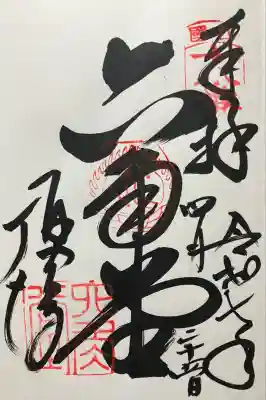 奉拝
令和七年
四月
二十五日
六角堂
頂法寺